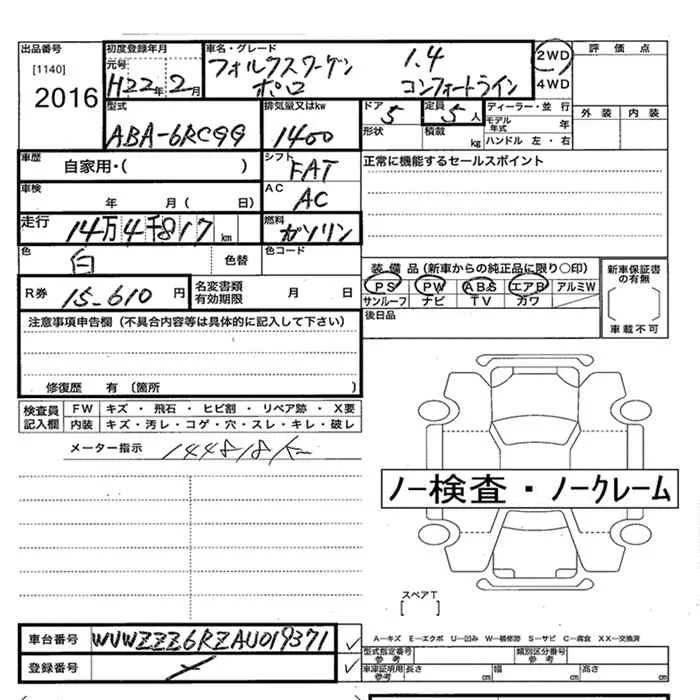 出品番号 初度登録年月 車名・グレード 2WD 評価点
[1140] 元号 フォルクスワーゲン 1.4
2016 H22年2月 ポロ コンフォートライン 4WD
型式 排気量又はkw ドア 定員 ディーラー・並行 外装 内装
ABA-6RCGG 1400 5 5人 モデル年式 年
形状 積載 kg ハンドル 左・右
車歴 自家用・( ) シフト FAT 正常に機能するセールスポイント
車検 年 月( 日) AC AC
走行 14万4千817km 燃料 ガソリン
色 白 色替 色コード
装備品(新車からの純正品に限り○印) 新車保証書の有無
R券 15-610円 名変書類有効期限 月 日 PS PW ABS エアB アルミW
サンルーフ ナビ TV カワ
注意事項申告欄(不具合内容等は具体的に記入して下さい) 後日品 車載不可
修復歴 有 (箇所 )
検査員記入欄 FW キズ・飛石・ヒビ割・リペア跡・X要
内装 キズ・汚レ・コゲ・穴・スレ・キレ・破レ
メーター指示 144818km
ノー検査・ノークレーム
スペアT
[ ]
車台番号 WVWZZZ6RZAU019371
A-キズ E-エクボ U-凹み W-補修跡 S-サビ C-腐食 XX-交換済
登録番号
型式指定番号 参考 類別区分番号 参考
車庫証明用 参考 長さ cm 幅 cm 高さ cm